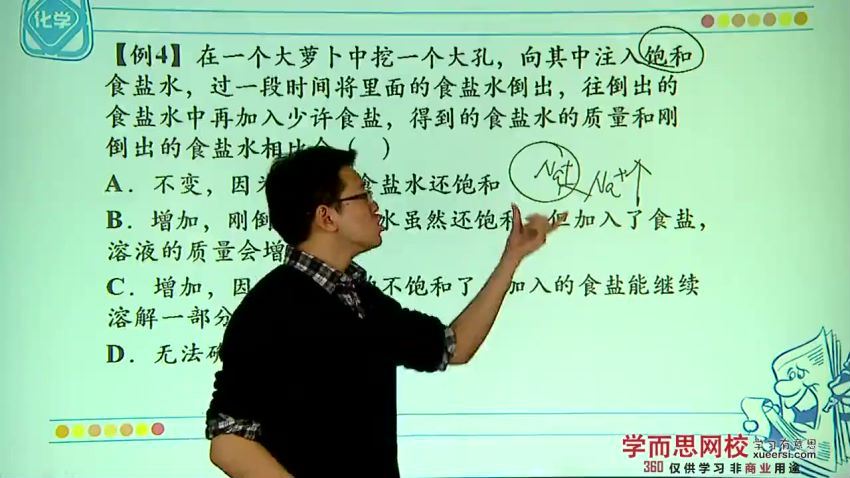 化学
【例4】在一个大萝卜中挖一个大孔，向其中注入饱和
食盐水，过一段时间将里面的食盐水倒出，往倒出的
食盐水中再加入少许食盐，得到的食盐水的质量和刚
倒出的食盐水相比会（ ）
Na⁺ Na⁺↑
A．不变，因为 食盐水还饱和
B．增加，刚倒 水虽然还饱和 但加入了食盐，
溶液的质量会增
C．增加，因 的不饱和了 加入的食盐能继续
溶解一部分
D．无法确
学而思网校 学习有意思
xueersi.com
360 仅供学习 非商业用途